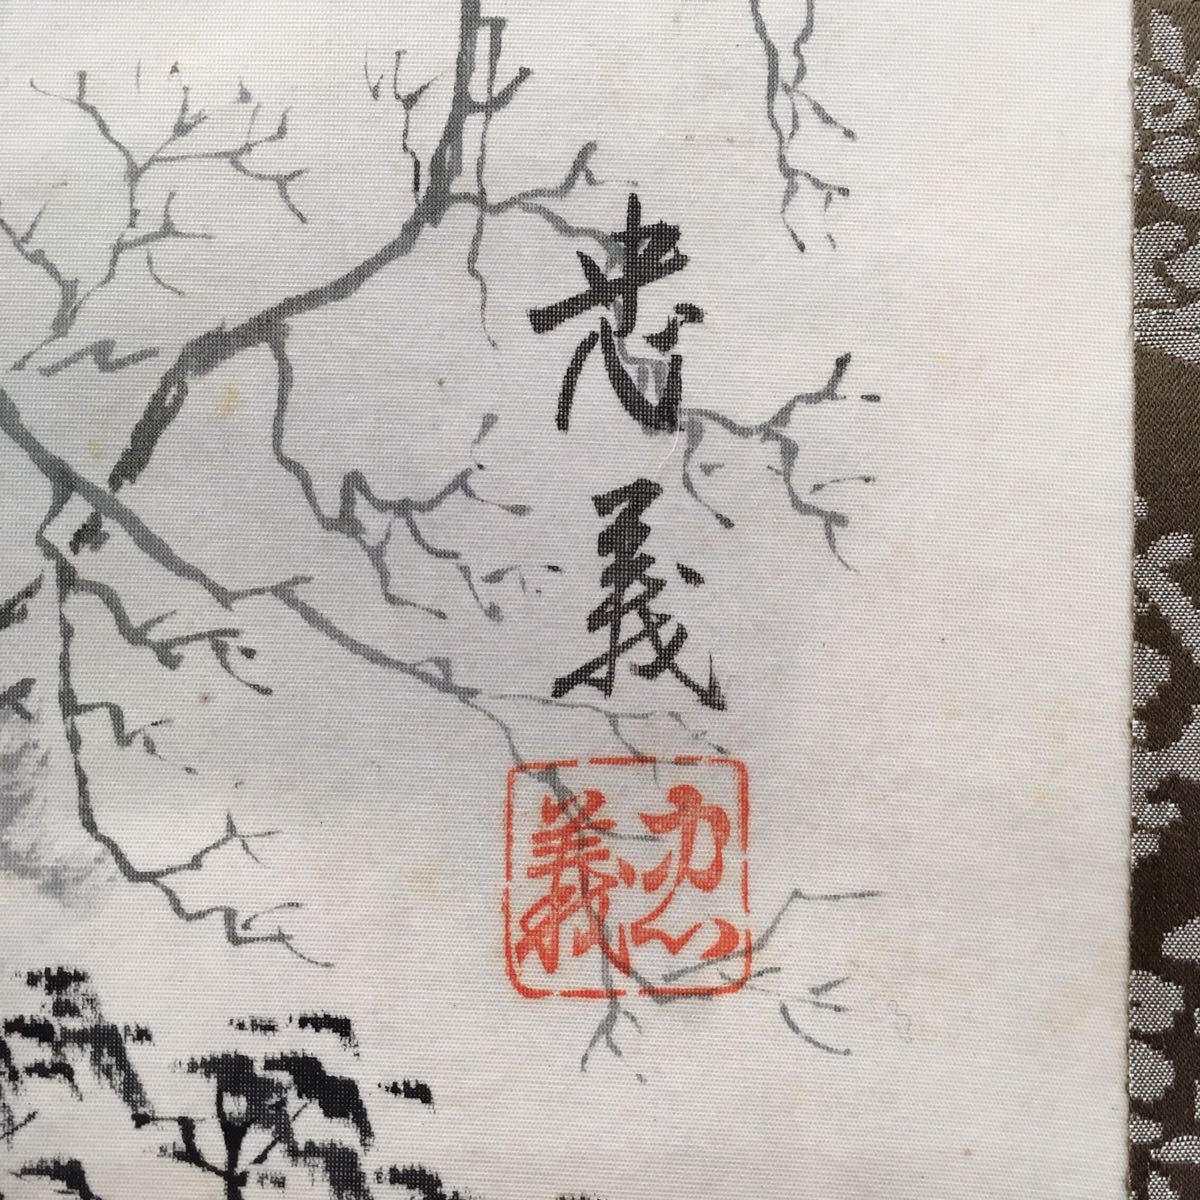 忠義
忠義